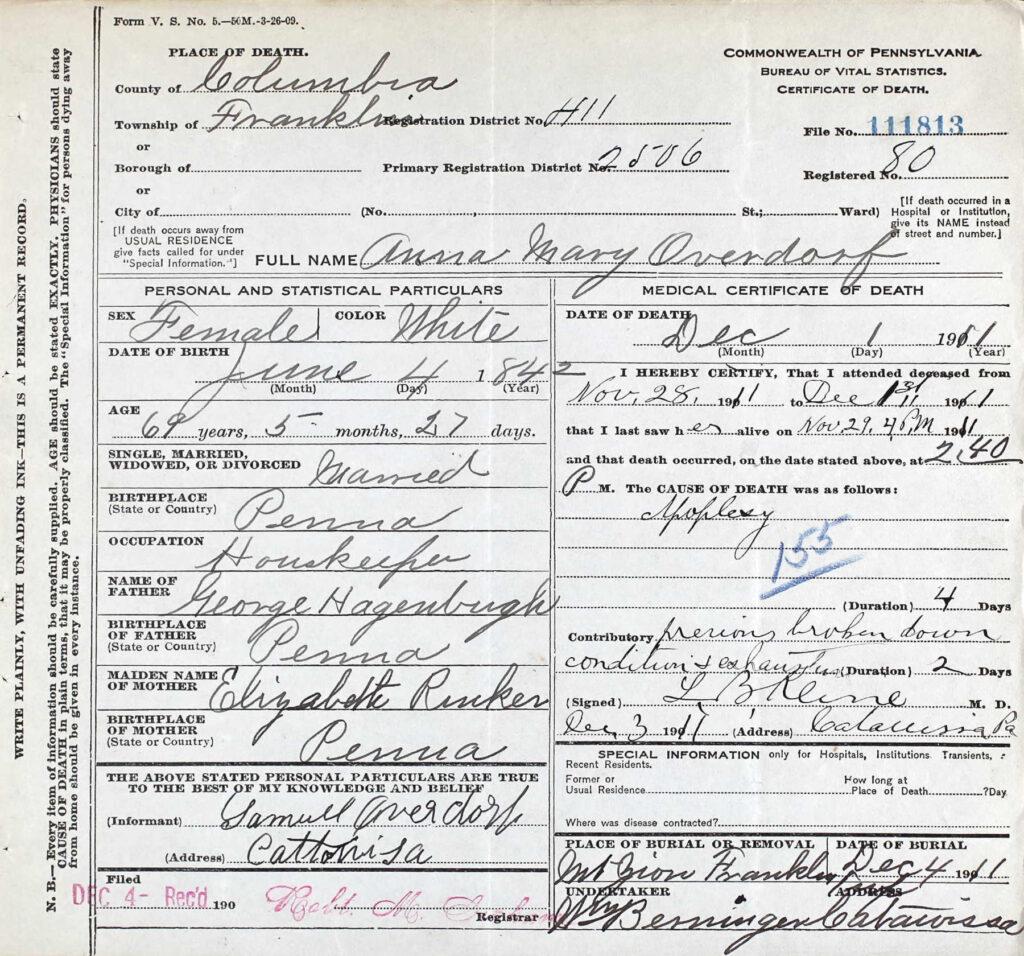 Form V. S. No. 5.—50M.-3-26-09.
WRITE PLAINLY, WITH UNFADING INK—THIS IS A PERMANENT RECORD.
N. B.—Every item of information should be carefully supplied. AGE should be stated EXACTLY. PHYSICIANS should state
CAUSE OF DEATH in plain terms, that it may be properly classified. The "Special Information" for persons dying away
from home should be given in every instance.
PLACE OF DEATH.
County of Columbia
Township of Franklin
or
Borough of
or
City of
(No. , St.; Ward)
Registration District No. 411
Primary Registration District No. 2506
COMMONWEALTH OF PENNSYLVANIA
BUREAU OF VITAL STATISTICS.
CERTIFICATE OF DEATH.
File No. 111813
Registered No. 80
[If death occurred in a
Hospital or Institution,
give its NAME instead
of street and number.]
[If death occurs away from
USUAL RESIDENCE
give facts called for under
"Special Information."]
FULL NAME Anna Mary Overdorf
PERSONAL AND STATISTICAL PARTICULARS
SEX Female COLOR White
DATE OF BIRTH
June 4 1842
(Month) (Day) (Year)
AGE
69 years, 5 months, 27 days.
SINGLE, MARRIED,
WIDOWED, OR DIVORCED Married
BIRTHPLACE
(State or Country) Penna
OCCUPATION Houskeeper
NAME OF
FATHER George Hagenbugh
BIRTHPLACE
OF FATHER
(State or Country) Penna
MAIDEN NAME
OF MOTHER Elizabeth Rinker
BIRTHPLACE
OF MOTHER
(State or Country) Penna
THE ABOVE STATED PERSONAL PARTICULARS ARE TRUE
TO THE BEST OF MY KNOWLEDGE AND BELIEF
(Informant) Samuel Overdorf
(Address) Cattowisa
Filed
DEC 4- Rec'd 190
Registrar
MEDICAL CERTIFICATE OF DEATH
DATE OF DEATH
Dec 1 1911
(Month) (Day) (Year)
I HEREBY CERTIFY, That I attended deceased from
Nov. 28, 1911 to Dec 1st 1911
that I last saw her alive on Nov 29, 4 P.M 1911
and that death occurred, on the date stated above, at 2,40
P M. The CAUSE OF DEATH was as follows:
Apoplexy
155
(Duration) 4 Days
Contributory previous broken down
condition & exhaustion (Duration) 2 Days
(Signed) L B Kline M. D.
Dec 3 1911 (Address) Catawissa Pa
SPECIAL INFORMATION only for Hospitals, Institutions Transients,
Recent Residents.
Former or
Usual Residence
How long at
Place of Death ?Day
Where was disease contracted?
PLACE OF BURIAL OR REMOVAL DATE OF BURIAL
Mt Zion Franklin Dec 4 1911
UNDERTAKER ADDRESS
Berninger Catawissa